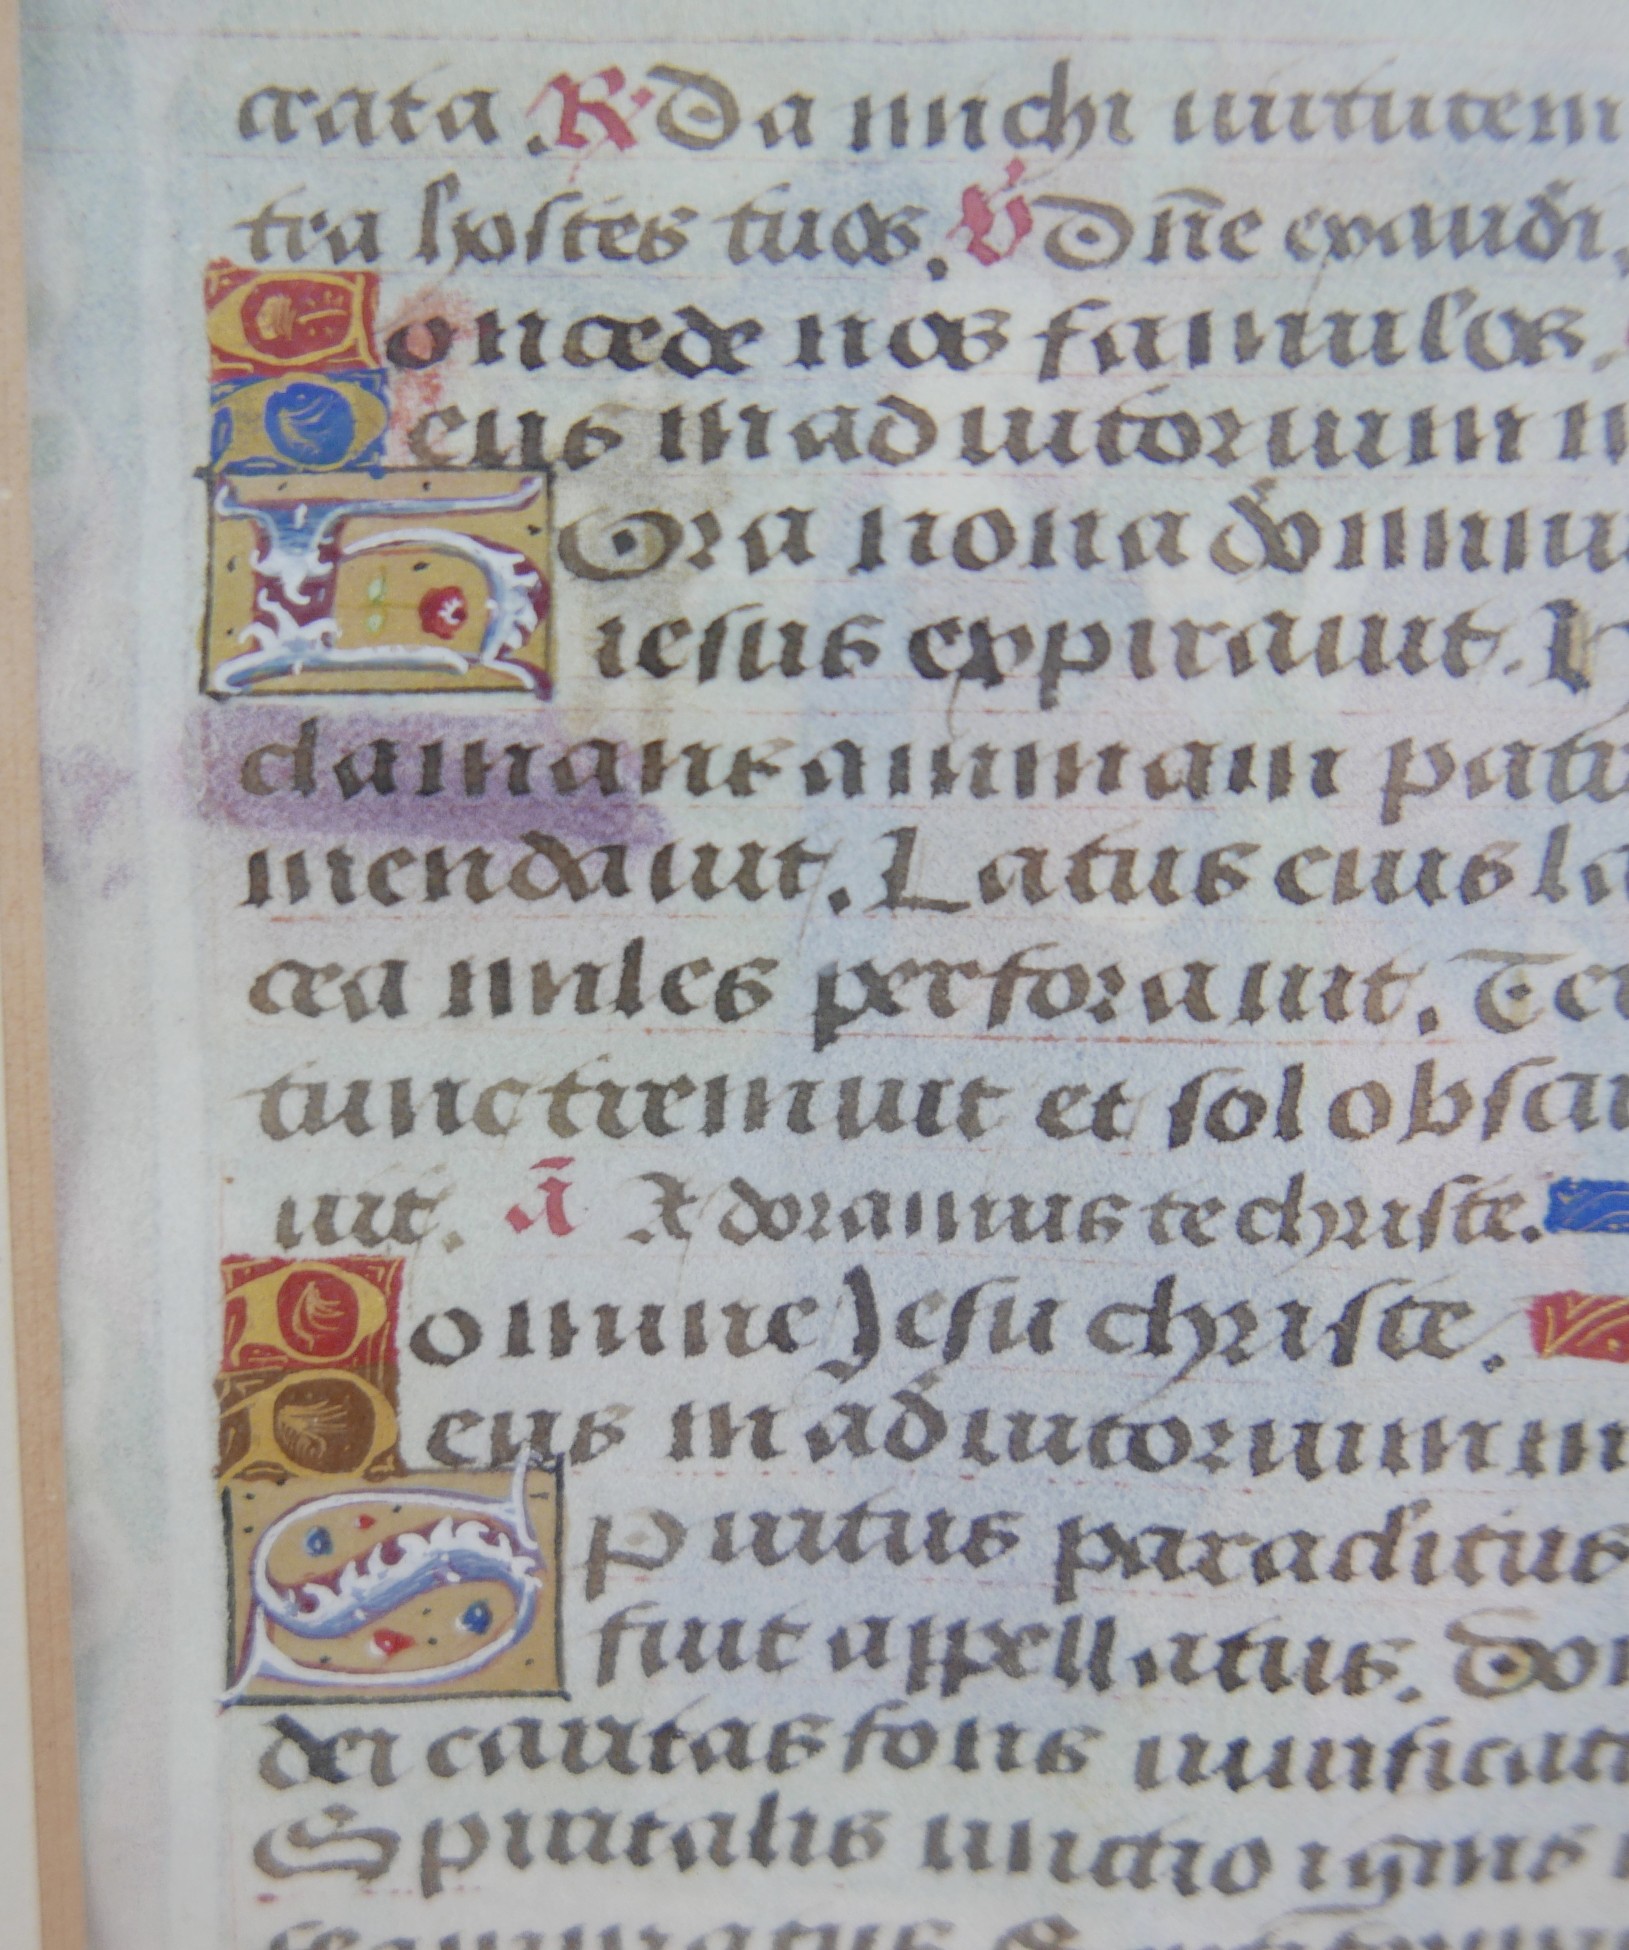 crata. R Da michi uirtutem
tra hostes tuos. V Dñe exaudi.
Concede nos famulos.
Deus in adiutorium
Hora nona dominu
iesus expirauit. H
clamans animam patri
mendauit. Latus eius la
cea miles perforauit. Ter
tunc tremuit et sol obscu
uit. Ā Adoramus te christe.
Domine Jesu christe.
Deus in adiutorium in
Spiritus paraclitus
fuit appellatus. Don
dei caritas fons uiuificati
Spiritalis unctio ignis